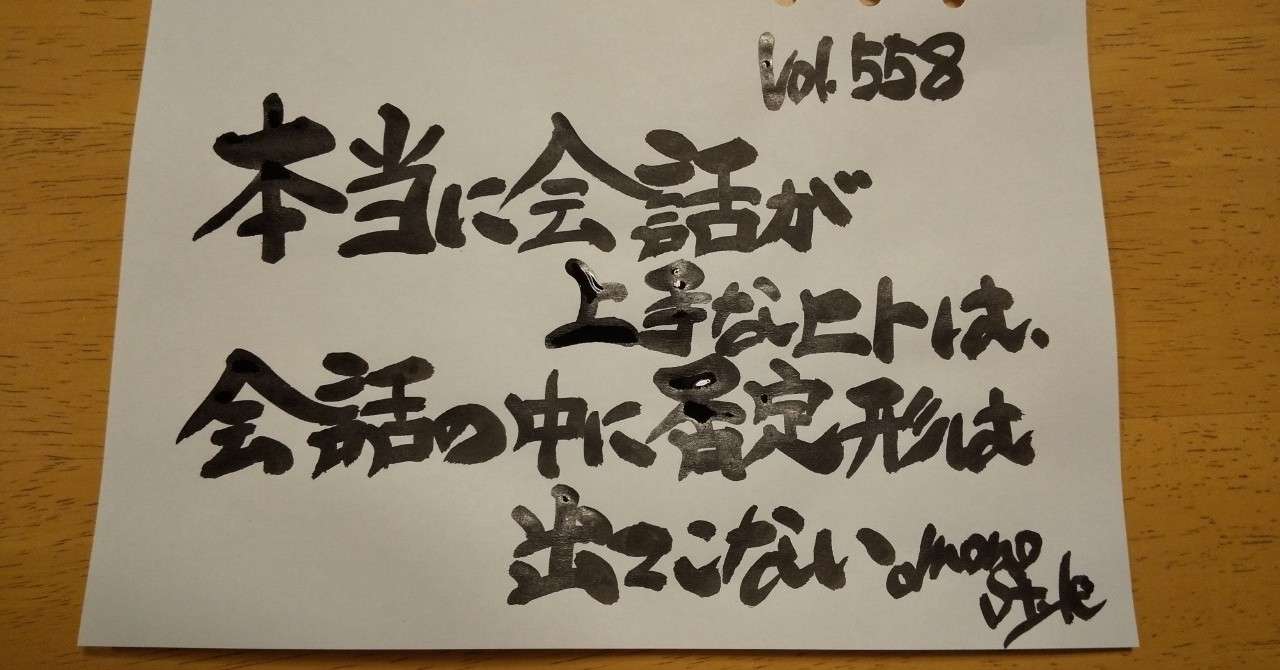 Vol.558
本当に会話が
上手なヒトは、
会話の中に否定形は
出てこない。
mono
Style